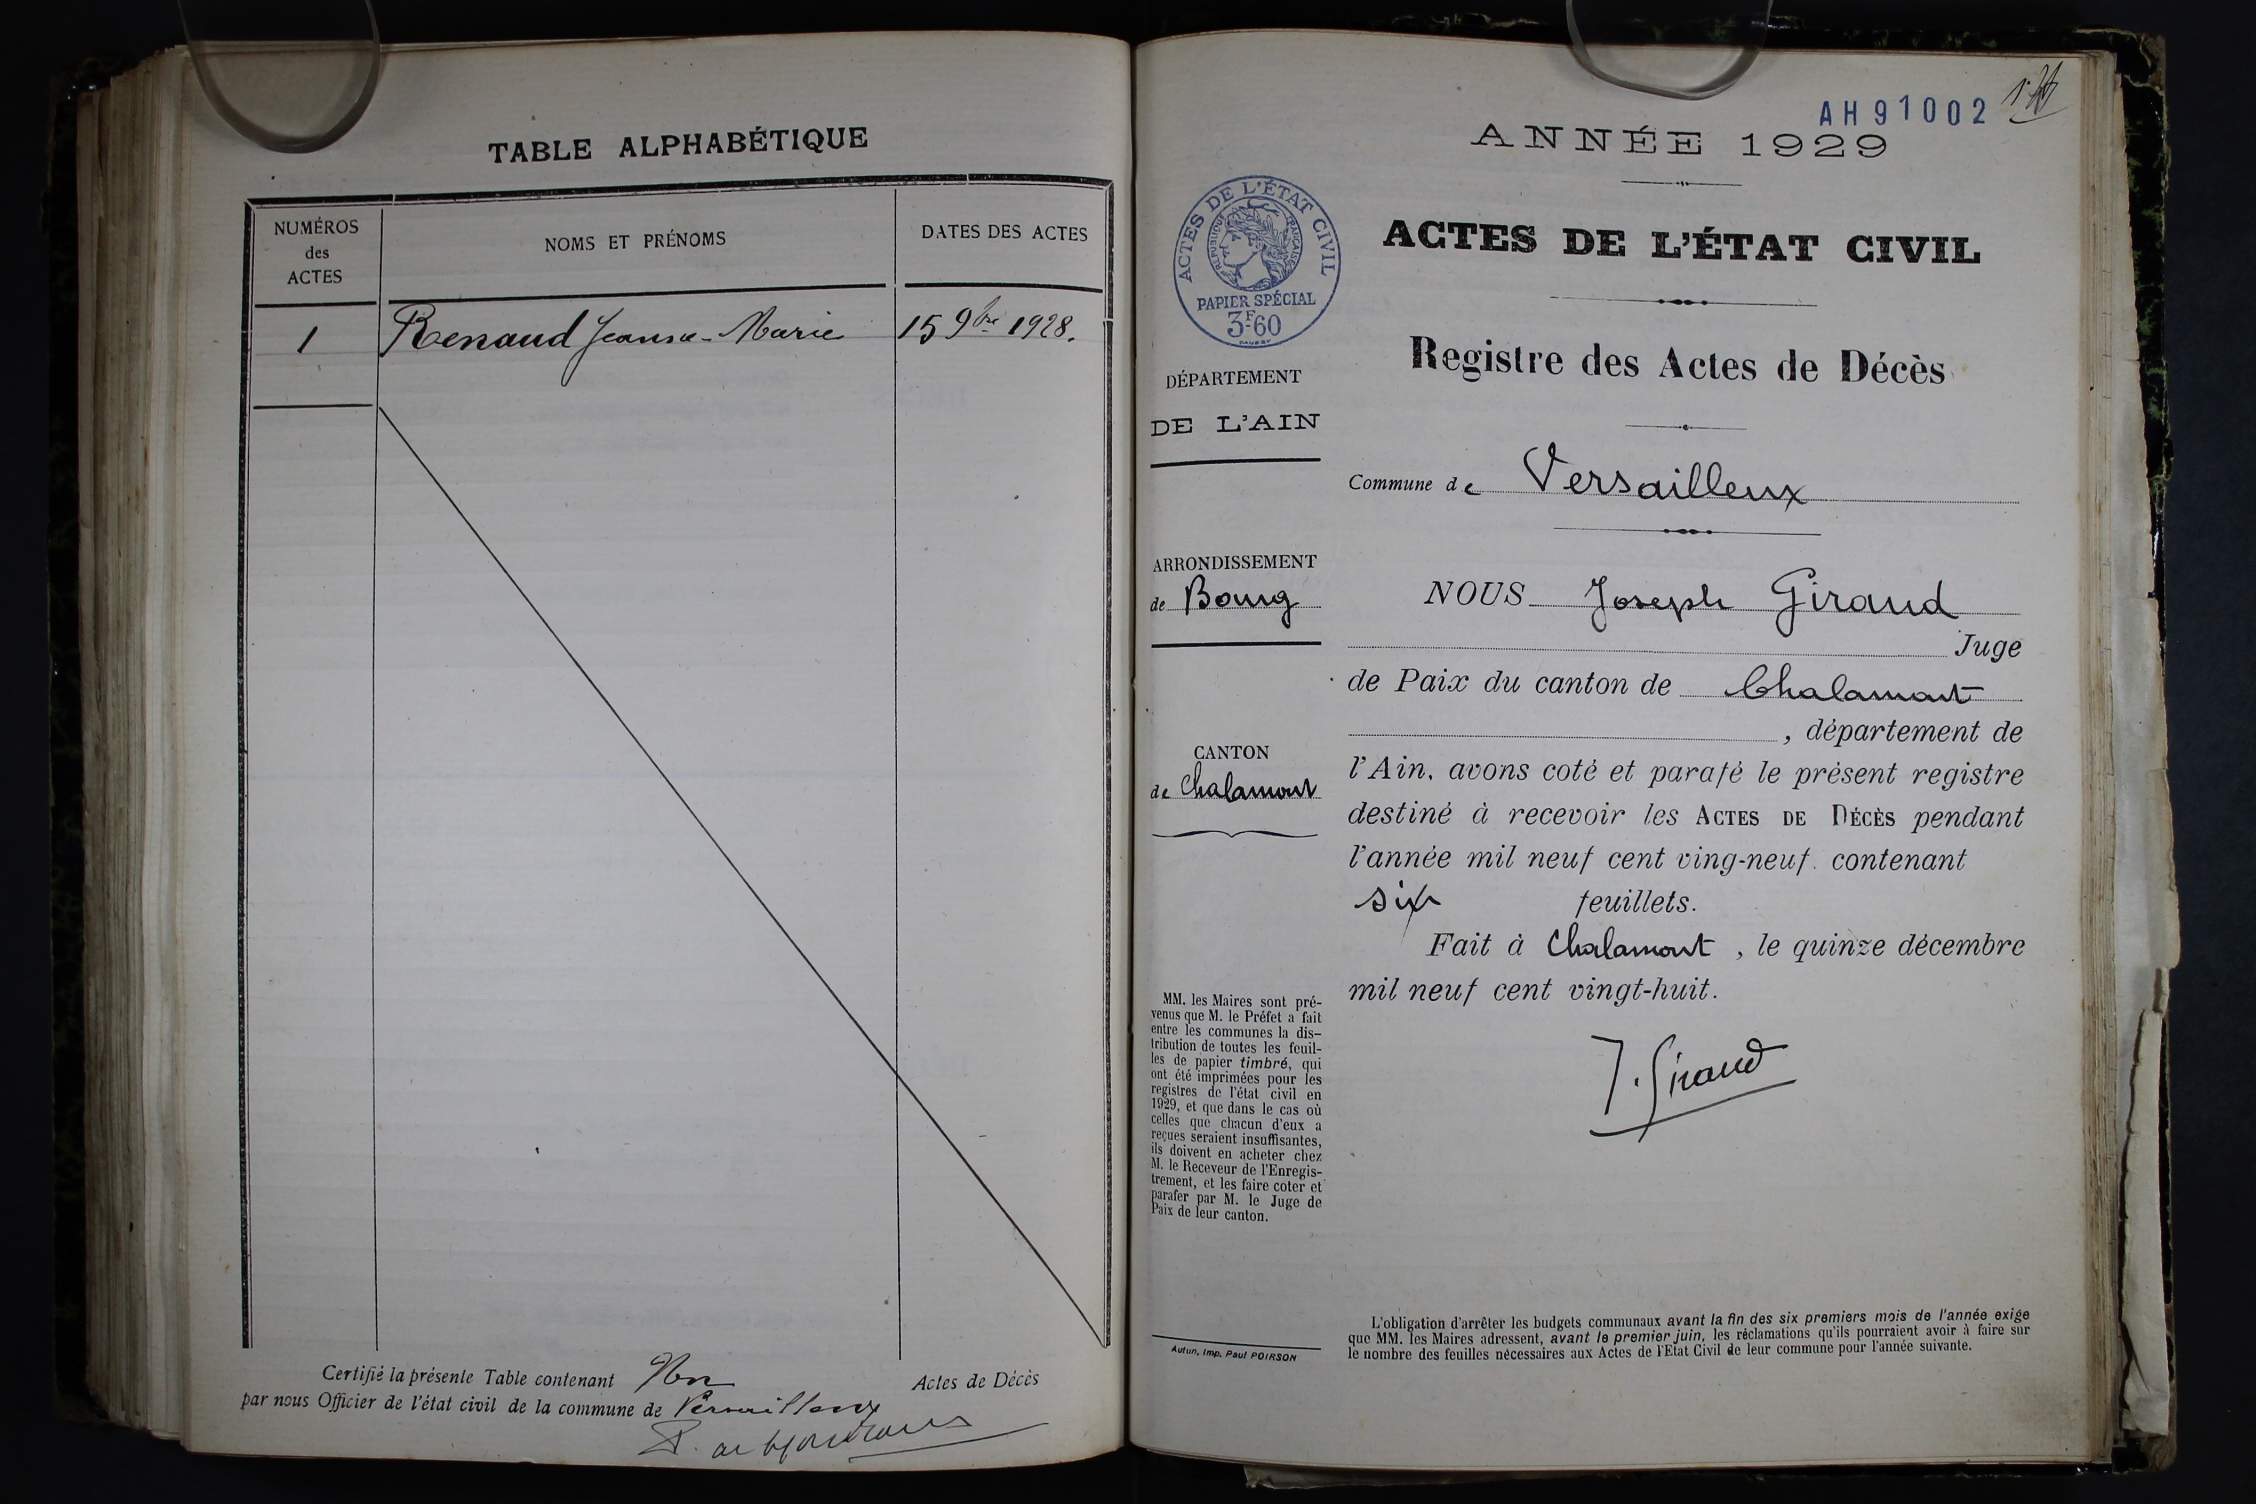 TABLE ALPHABÉTIQUE
NUMÉROS
des
ACTES
NOMS ET PRÉNOMS
DATES DES ACTES
1
Renaud Jeanne-Marie
15 9bre 1928.
Certifié la présente Table contenant
Actes de Décès
par nous Officier de l'état civil de la commune de Versailleux
AH91002
ANNÉE 1929
ACTES DE L'ÉTAT CIVIL
RÉPUBLIQUE FRANÇAISE
PAPIER SPÉCIAL
3F60
DÉPARTEMENT
DE L'AIN
ARRONDISSEMENT
de Bourg
CANTON
de Chalamont
MM. les Maires sont pré-
venus que M. le Préfet a fait
entre les communes la dis-
tribution de toutes les feuil-
les de papier timbré, qui
ont été imprimées pour les
registres de l'état civil en
1929, et que dans le cas où
celles que chacun d'eux a
reçues seraient insuffisantes,
ils doivent en acheter chez
M. le Receveur de l'Enregis-
trement, et les faire coter et
parafer par M. le Juge de
Paix de leur canton.
Autun, Imp. Paul POIRSON
ACTES DE L'ÉTAT CIVIL
Registre des Actes de Décès
Commune de Versailleux
NOUS Joseph Giraud
Juge
de Paix du canton de Chalamont
, département de
l'Ain, avons coté et parafé le présent registre
destiné à recevoir les ACTES DE DÉCÈS pendant
l'année mil neuf cent ving-neuf. contenant
six feuillets.
Fait à Chalamont, le quinze décembre
mil neuf cent vingt-huit.
J. Giraud
L'obligation d'arrêter les budgets communaux avant la fin des six premiers mois de l'année exige
que MM. les Maires adressent, avant le premier juin, les réclamations qu'ils pourraient avoir à faire sur
le nombre des feuilles nécessaires aux Actes de l'Etat Civil de leur commune pour l'année suivante.